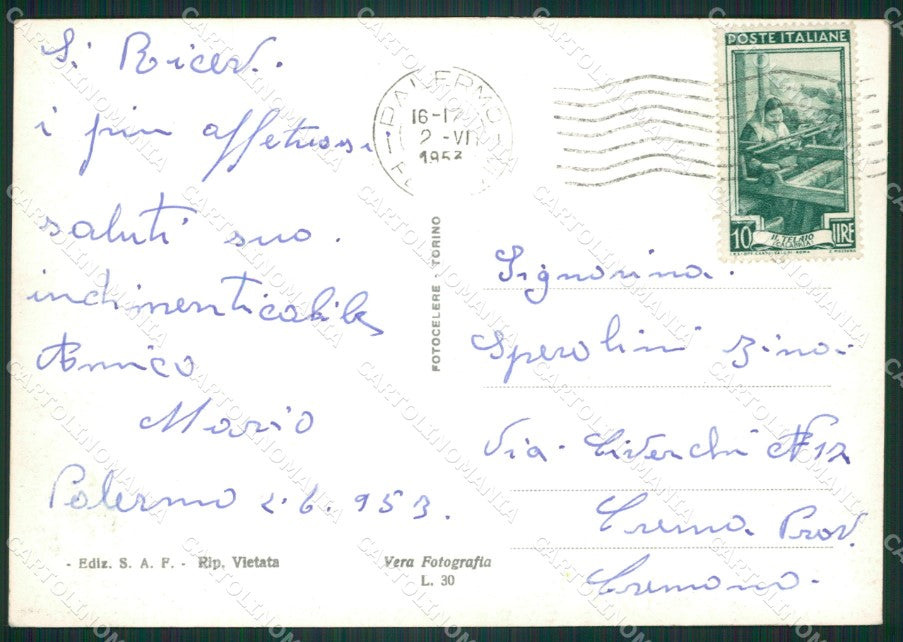 Si Ricev.
i piu affettuosi
saluti suo.
indimenticabile
Amico
Mario
Palermo 2.6.953.
- Ediz. S. A. F. - Rip. Vietata
Vera Fotografia
L. 30
FOTOCELERE - TORINO
PALERMO
16-17
2 -VI
1953
POSTE ITALIANE
10 LIRE
IL TELAIO
(CALABRIA)
Signorina.
Sperolini Zina.
Via. Civerchi N 12
Crema. Prov.
Cremona.
CARTOLINOMANIA